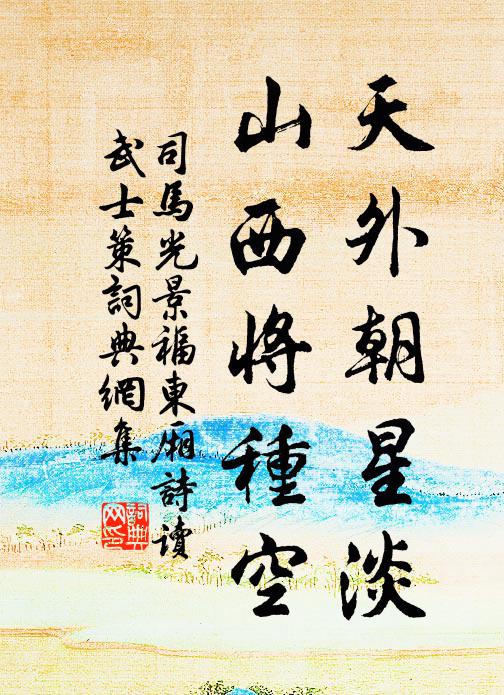 天外朝星淡
山西將種空
司馬光景福東廂詩讀
武士策詞典網集
詞典网印